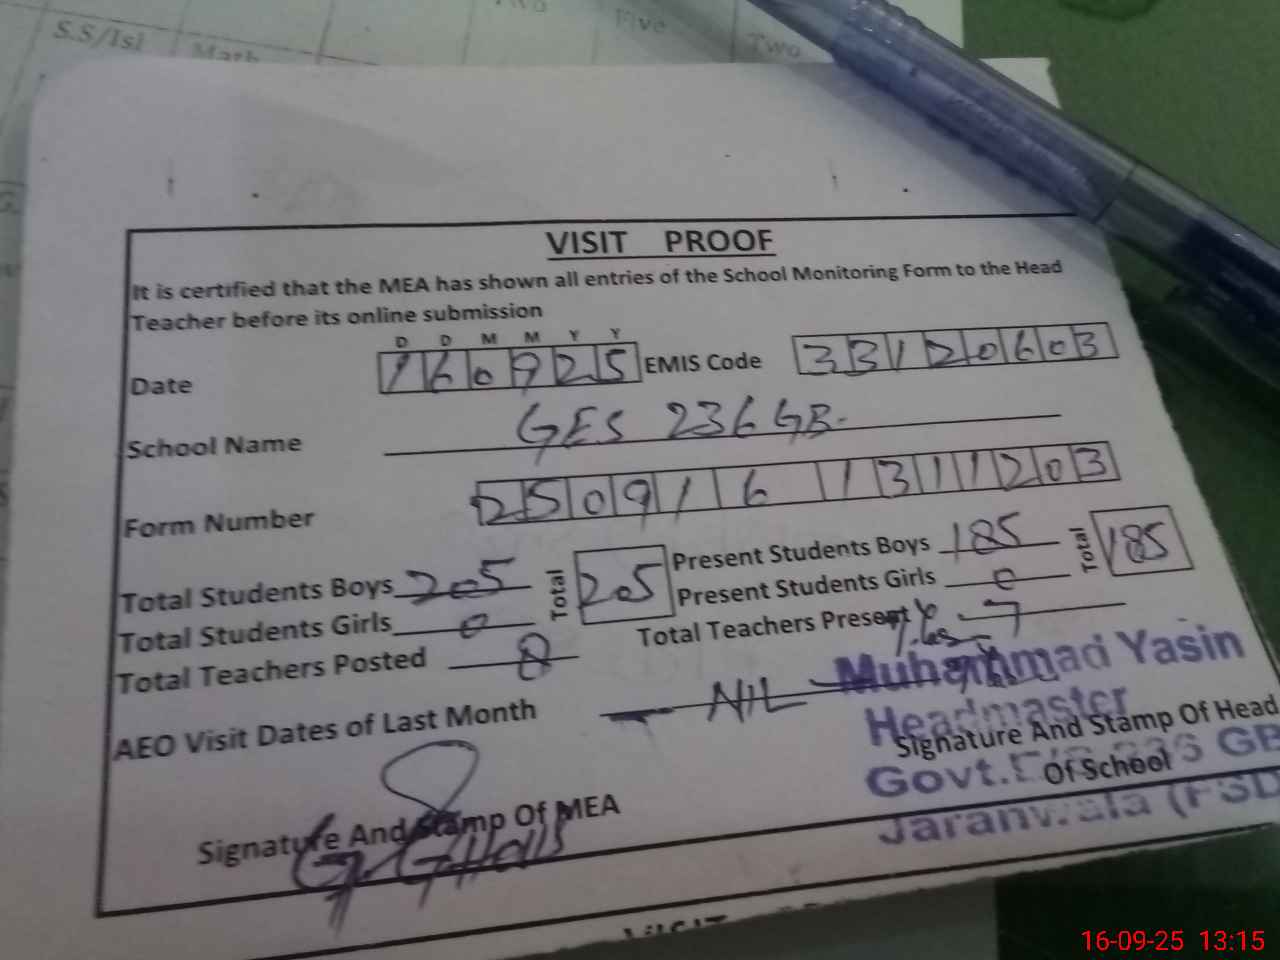 S.S/Isl Math Five Two
VISIT PROOF
It is certified that the MEA has shown all entries of the School Monitoring Form to the Head
Teacher before its online submission
D D M M Y Y
Date 160925 EMIS Code 33120603
School Name GES 236 GB.
Form Number 250916 1311203
Total Students Boys 205 Total 205 Present Students Boys 185 Total 185
Total Students Girls 0 Present Students Girls 0
Total Teachers Posted 8 Total Teachers Present 7
AEO Visit Dates of Last Month NIL
Muhammad Yasin
Headmaster
Signature And Stamp Of Head
Of School
Govt. E/S 236 GB
Jaranwala (FSD
Signature And Stamp Of MEA
16-09-25 13:15